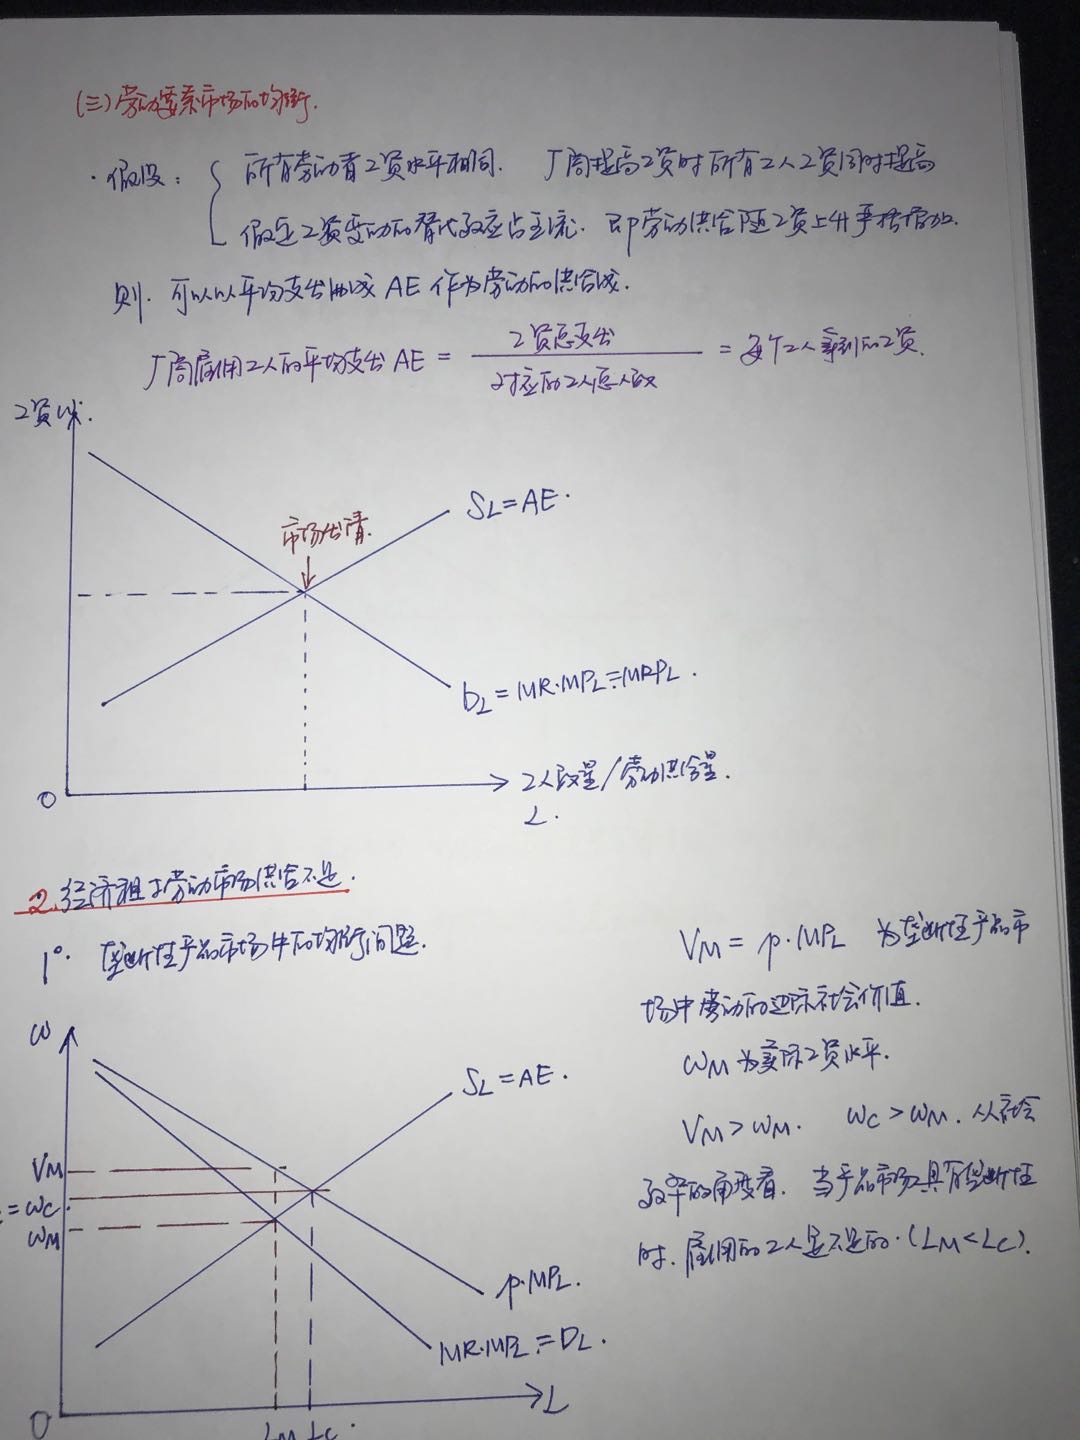 (三)劳动要素市场的均衡.
·假设: 所有劳动者工资水平相同. 厂商提高工资时所有工人工资同时提高
假定工资变动的替代效应占主流. 即劳动供给随工资上升严格增加.
则. 可以以平均支出曲线 AE 作为劳动的供给线.
厂商雇用工人的平均支出 AE = 工资总支出 / 对应的工人总人数 = 每个工人拿到的工资.
工资 W.
SL=AE.
市场出清
DL=MR·MPL=MRPL.
O
工人数量/劳动供给量.
L.
2.经济租与劳动市场供给不足.
1°. 垄断性产品市场中的均衡问题.
VM = p·MPL 为垄断性产品市
场中劳动的边际社会价值.
ωM 为实际工资水平.
VM>ωM. ωC>ωM. 从社会
效率的角度看. 当产品市场具有垄断性
时. 雇用的工人是不足的.(LM<LC).
ω
SL=AE.
VM
=ωC.
ωM
p·MPL.
MR·MPL=DL.
O
L
LM LC.